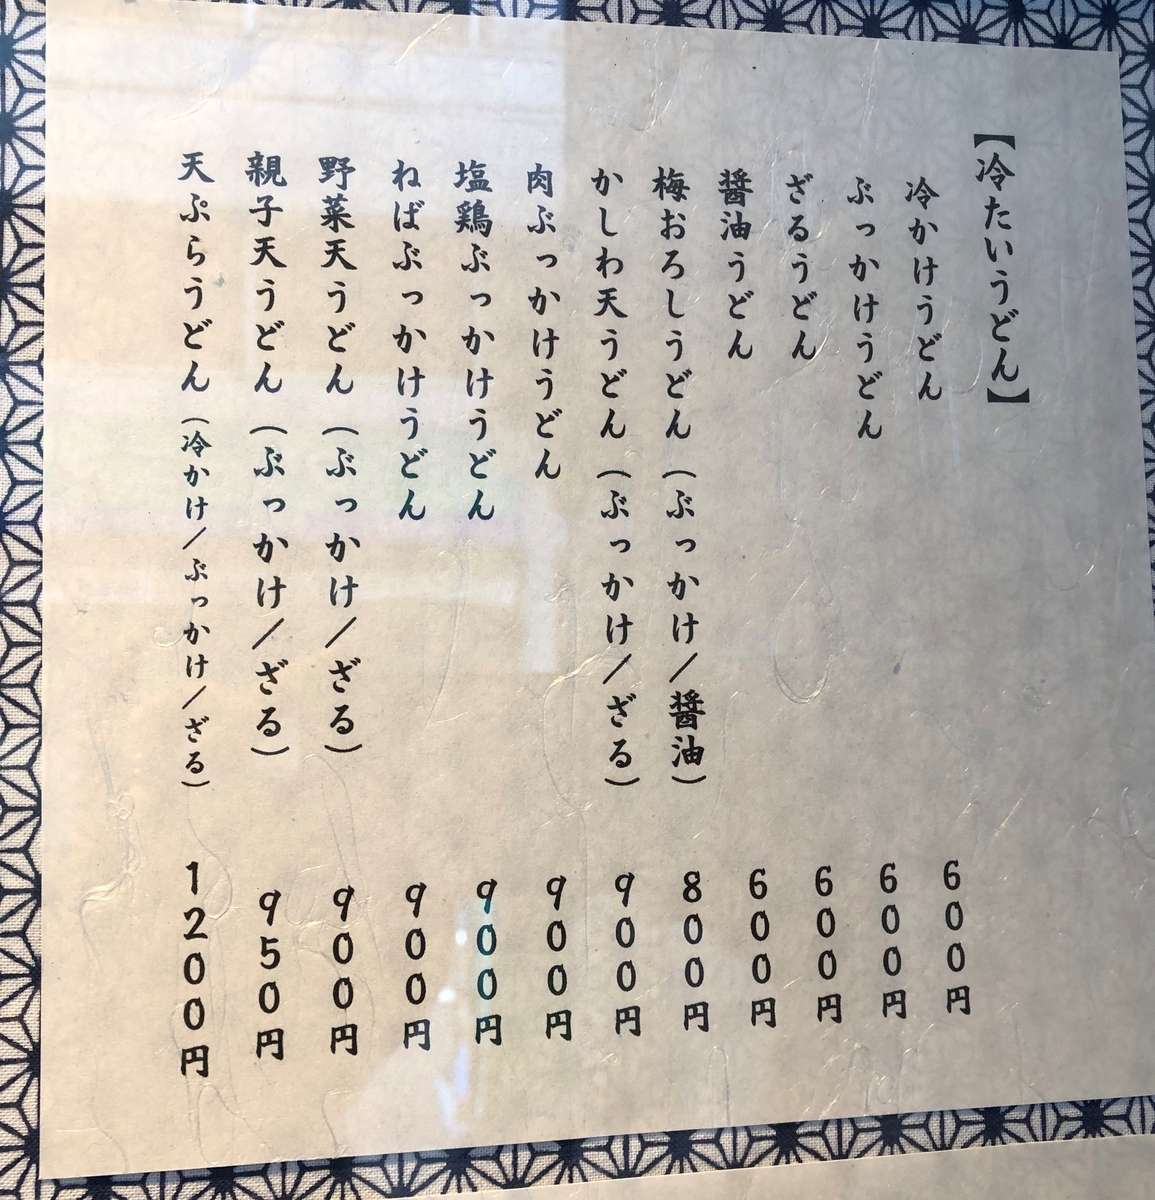 【冷たいうどん】
冷かけうどん 600円
ぶっかけうどん 600円
ざるうどん 600円
醤油うどん 600円
梅おろしうどん（ぶっかけ／醤油） 800円
かしわ天うどん（ぶっかけ／ざる） 900円
肉ぶっかけうどん 900円
塩鶏ぶっかけうどん 900円
ねばぶっかけうどん 900円
野菜天うどん（ぶっかけ／ざる） 900円
親子天うどん（ぶっかけ／ざる） 950円
天ぷらうどん（冷かけ／ぶっかけ／ざる） 1200円